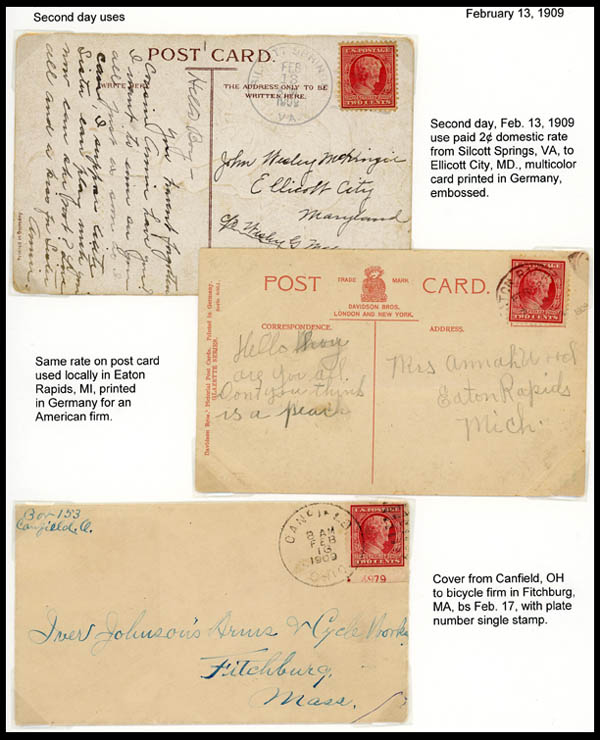 Second day uses
February 13, 1909
POST CARD.
WRITE HERE
THE ADDRESS ONLY TO BE
WRITTEN HERE.
SPRINGS
FEB
1909
VA.
U.S. POSTAGE
TWO CENTS
Hello Boy—
you must
Cousin Annie love you
I want to come
all just as soon as I
can, I suppose little
Sister can play with you
now can she
all and a kiss for Sister
Annie
Printed in Germany
John Wesley
Ellicott City
Maryland
c/o Wesley G
Second day, Feb. 13, 1909
use paid 2¢ domestic rate
from Silcott Springs, VA, to
Ellicott City, MD., multicolor
card printed in Germany,
embossed.
POST CARD.
TRADE MARK
DAVIDSON BROS.
LONDON AND NEW YORK.
CORRESPONDENCE.
ADDRESS.
Davidson Bros.' Pictorial Post Cards. Printed in Germany.
TWO CENTS
Hello
are you all
Dont you think
is a peach
Mrs Annah Wood
Eaton Rapids
Mich.
Same rate on post card
used locally in Eaton
Rapids, MI, printed
in Germany for an
American firm.
Box 153
Canfield, O.
CANFIELD
8 AM
FEB
1909
OHIO
TWO CENTS
4979
Iver Johnson's Arms & Cycle Works
Fitchburg,
Mass.
Cover from Canfield, OH
to bicycle firm in Fitchburg,
MA, bs Feb. 17, with plate
number single stamp.